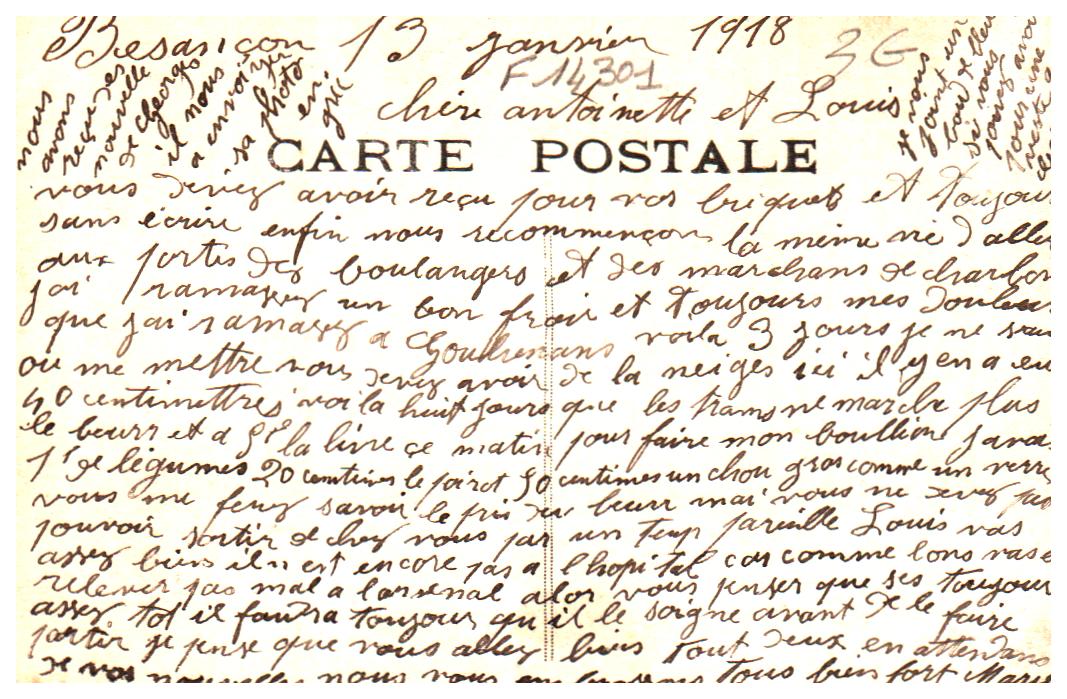 Besançon 13 janvier 1918
3G
F 14301
chère antoinette et Louis
nous
avons
reçu des
nouvelle
de George
il nous
a envoiyer
sa photo
en
gric
je vous
joint un
bout de
si vous
pour une
CARTE POSTALE
vous devez avoir reçu pour vos briquets et toujour
sans écrire enfin nous recommençons la même vie d'aller
aux portes des boulangers et des marchans de charbon
j'ai ramasser un bon froir et toujours mes douleur
que j'ai ramassez a Gouhenans voila 3 jours je ne sais
ou me mettre vous devez avoir de la neiges ici il y en a eu
40 centimettres voila huit jours que les trams ne marche plus
le beurr et a la livre ce matin pour faire mon boullion j'avai
1f de légumes 20 centimes le poirot 50 centimes un chou gros comme un verre
vous me ferez savoir le pris du beurr mai vous ne devez pas
pouvoir sortir de chez vous par un temp pareille Louis vas
assez bien il n est encore pas a l hopital car comme lons vas e
relever pas mal a larsenal alor vous penser que ses toujour
assez tot il faudra toujour qu il le soigne avant de le faire
partir je pense que vous allez bien tout deux en attendans
de vos nouvelles nous vous embrassons tous bien fort Marie